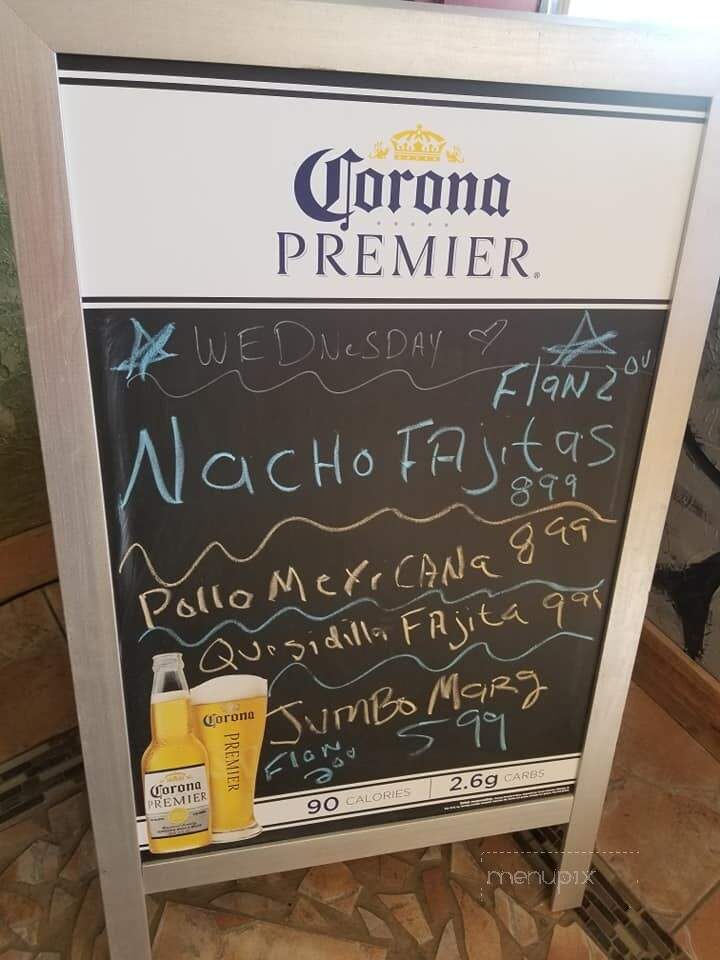 Corona
PREMIER.
WEDNeSDAY
FlaN 2 00
NacHo FAjitas
899
Pollo MexiCANa 899
Quesidilla FAjita 99
JUMBO Marg
599
Flan
200
Corona
PREMIER
Corona
PREMIER
90 CALORIES
2.6g CARBS
menupix